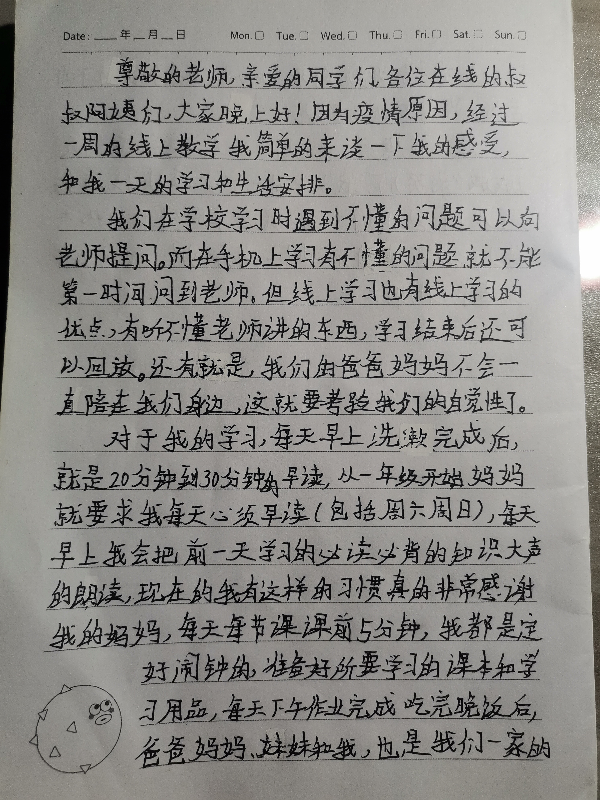 Date: ___年__月__日 Mon.□ Tue.□ Wed.□ Thu.□ Fri.□ Sat.□ Sun.□
尊敬的老师,亲爱的同学们,各位在线的叔
叔阿姨们,大家晚上好!因为疫情原因,经过
一周的线上教学我简单的来谈一下我的感受,
和我一天的学习和生活安排。
我们在学校学习时遇到不懂的问题可以向
老师提问。而在手机上学习有不懂的问题就不能
第一时间问到老师。但线上学习也有线上学习的
优点,有听不懂老师讲的东西,学习结束后还可
以回放。还有就是,我们的爸爸妈妈不会一
直陪在我们身边,这就要考验我们的自觉性了。
对于我的学习,每天早上洗漱完成后,
就是20分钟到30分钟的早读,从一年级开始妈妈
就要求我每天必须早读(包括周六周日),每天
早上我会把前一天学习的必读必背的知识大声
的朗读,现在的我有这样的习惯真的非常感谢
我的妈妈,每天每节课课前5分钟,我都是定
好闹钟的,准备好所要学习的课本和学
习用品,每天下午作业完成吃完晚饭后,
爸爸妈妈、妹妹和我,也是我们一家的